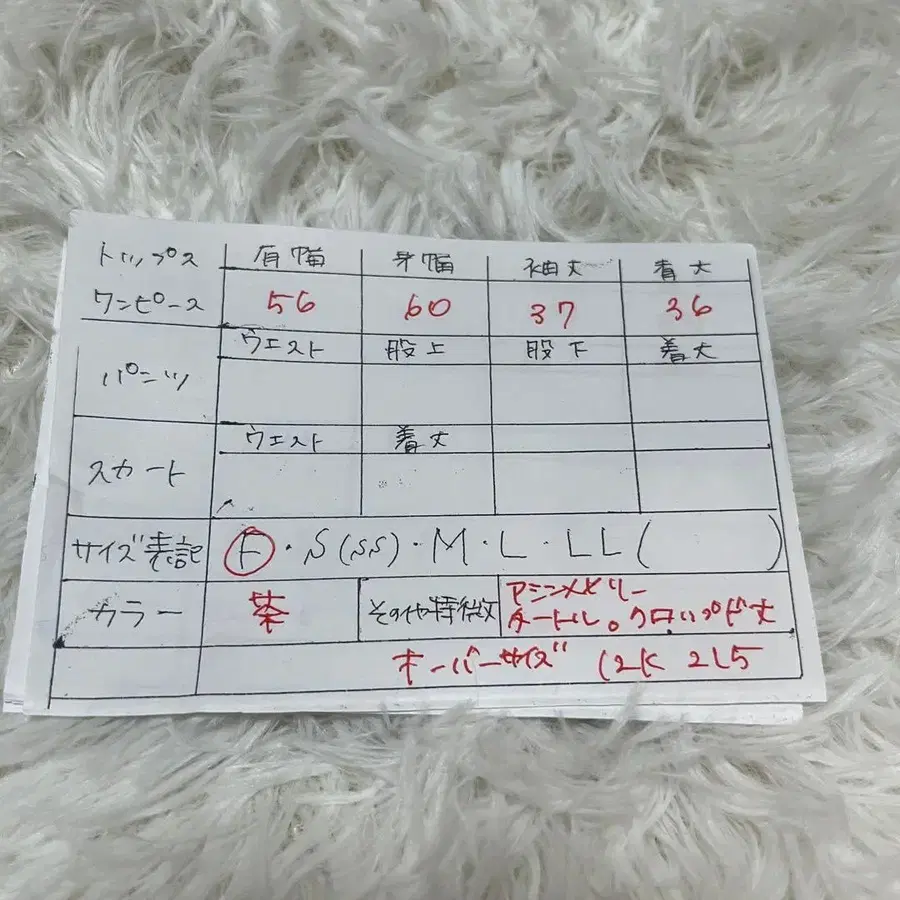 トップス 肩幅 身幅 袖丈 着丈
ワンピース 56 60 37 36
パンツ ウエスト 股上 股下 着丈
スカート ウエスト 着丈
サイズ表記 F・S(SS)・M・L・LL( )
カラー 茶 その他特徴 アシンメトリー
タートル。クロップド丈
オーバーサイズ